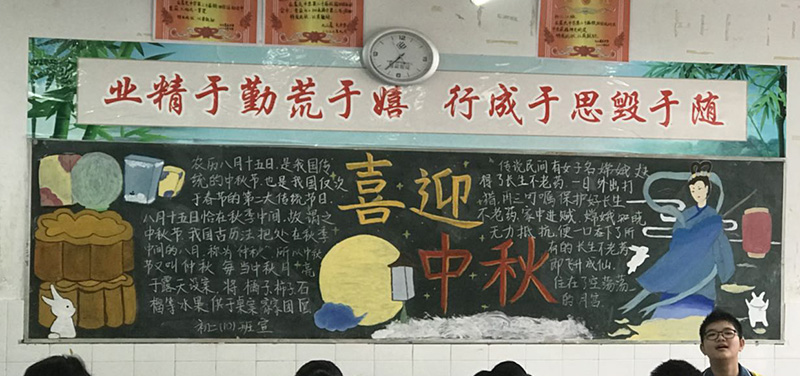 业精于勤荒于嬉 行成于思毁于随
喜迎
中秋
农历八月十五日,是我国传
统的中秋节,也是我国仅次
于春节的第二大传统节日。
八月十五恰在秋季中间,故谓之
中秋节。我国古历法把处在秋季
中间的八月,称为仲秋,所以中秋
节又叫仲秋。每当中秋月亮
于露天设案,将橘子柿子石
榴等水果供于桌案 家家团圆
初二(10)班宣
传说民间有女子名嫦娥
得了长生不老药,一日外出打
猎,叮嘱保护好长生
不老药,家中进贼,嫦娥
无力抵抗,便一口吞下了所
有的长生不老药
即飞升成仙,
住在了空荡荡
的月宫